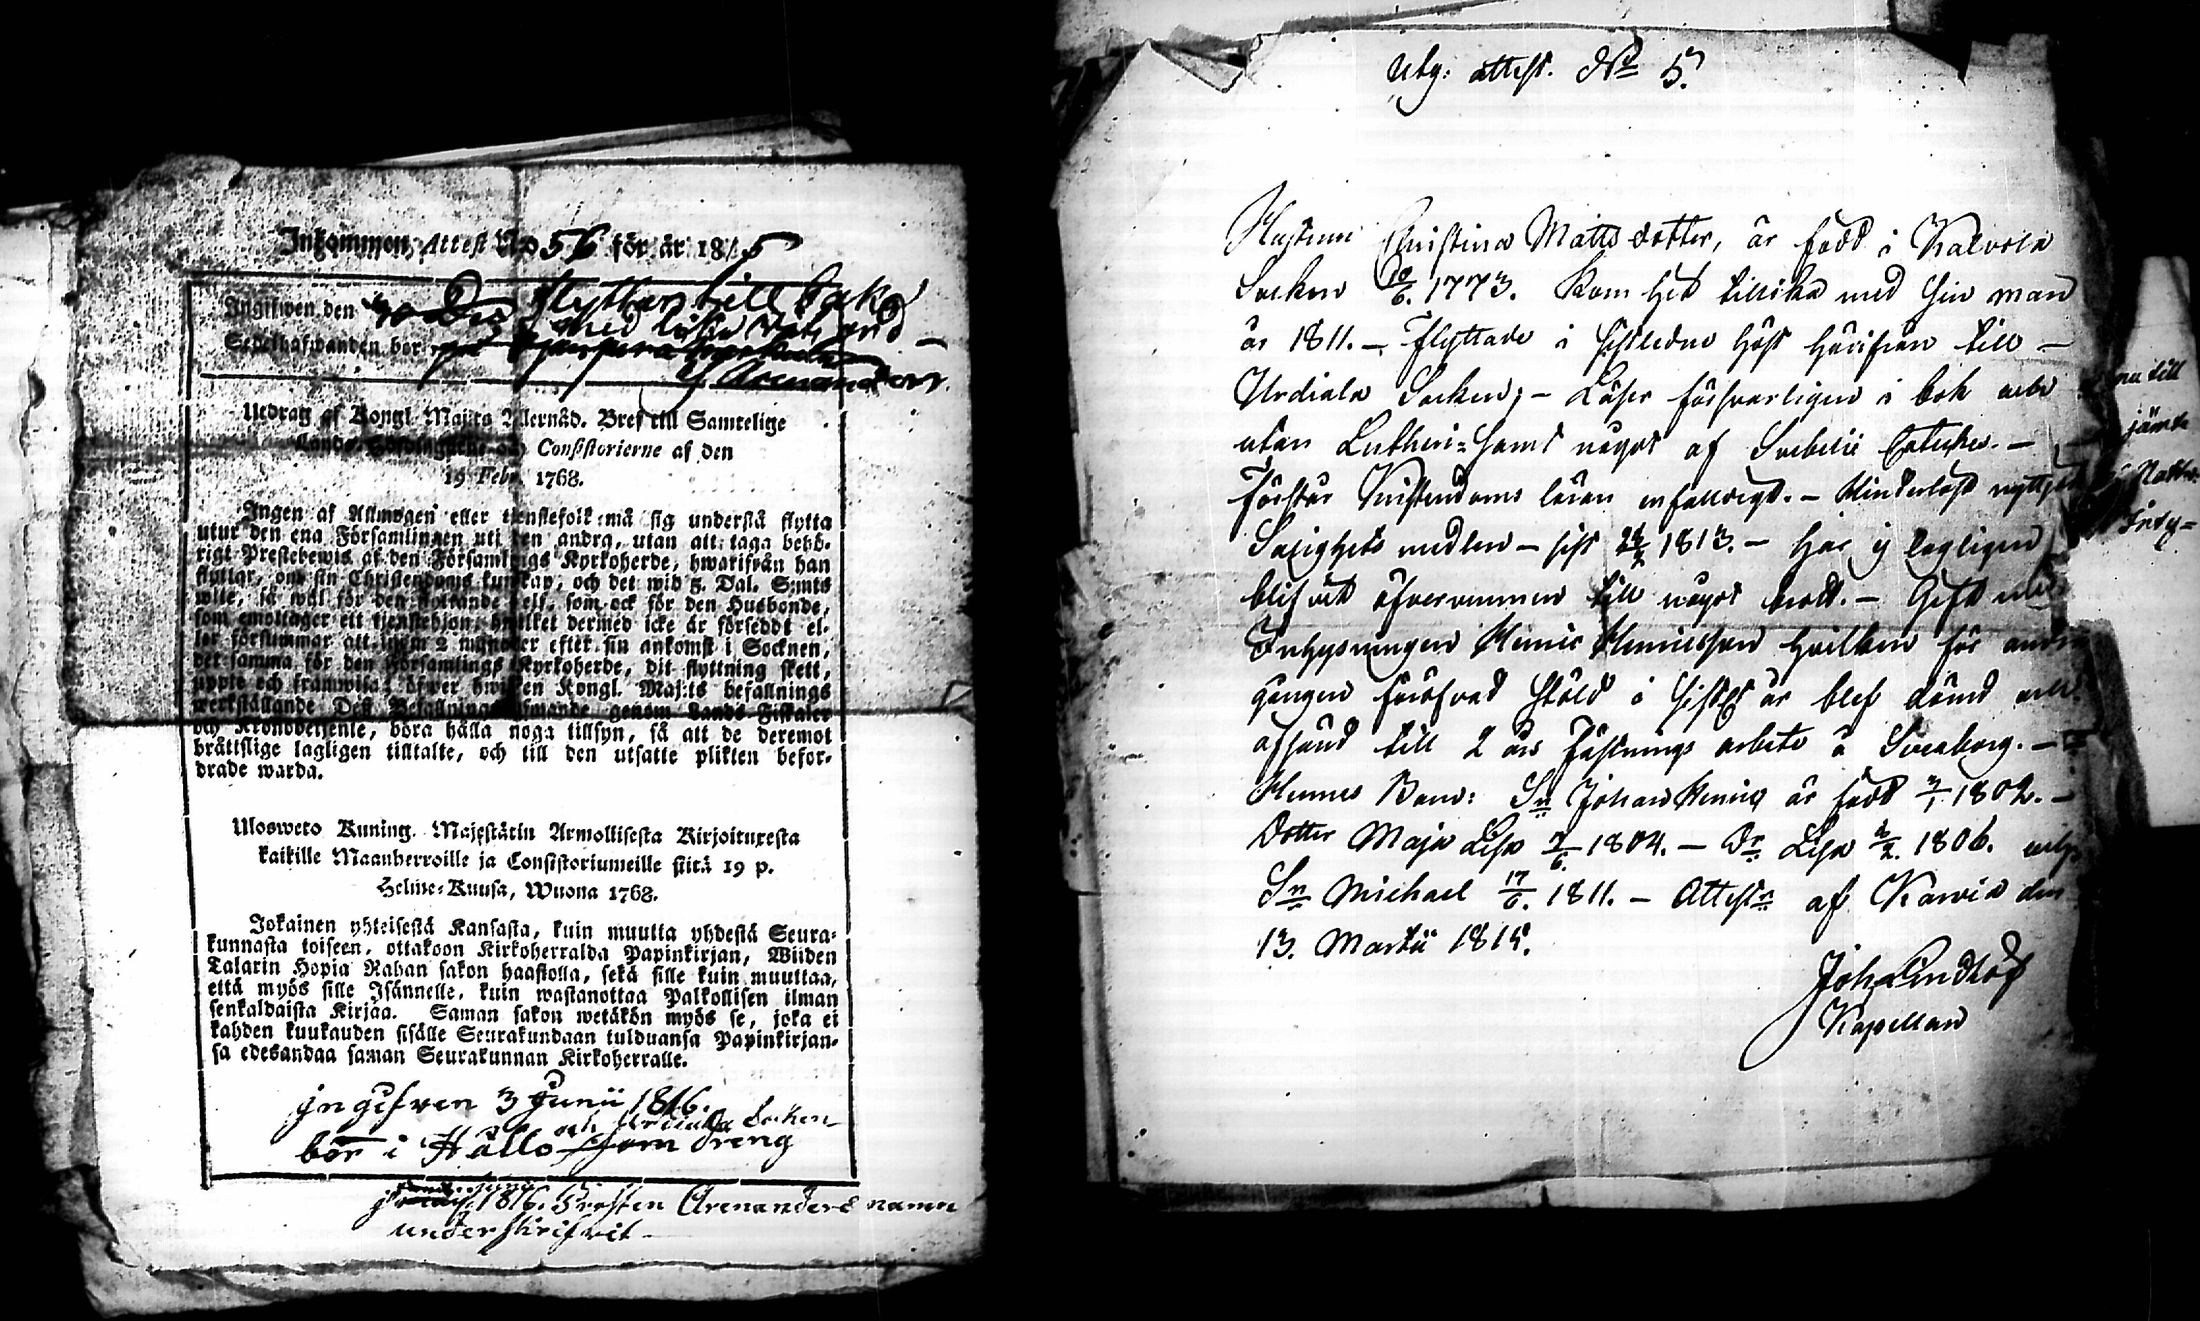 Inkommen Attest No 56 för år 1815
Ingifwen den
flyttar till baka
med lika wits ord
Sedelhafwanden bor
Arenander.
Utdrag af Kongl. Maj:ts Allernåd. Bref till Samtelige
Lands-Höfdingarne och Consistorierne af den
19 Febr. 1768.
Ingen af Allmogen eller tjenstefolk må sig understå flytta
utur den ena Församlingen uti den andra, utan att taga behö-
rigt Prestebewis af den Församlings Kyrkoherde, hwarifrån han
flyttar, om sin Christendoms kunskap, och det wid 5. Dal. S:mts
wite, så wäl för den flyttande sjelf, som ock för den Husbonde,
som emottager ett tjenstehjon, hwilket dermed icke är försedt el-
ler försummar att inom 2 månader efter sin ankomst i Socknen,
det samma för den Församlings Kyrkoherde, dit flyttning skett,
uppte och framwisa; öfwer hwilken Kongl. Maj:ts befallnings
werkställande Dess Befallningshafwande genom Lands-Fiskaler
och Kronobetjente, böra hålla noga tillsyn, så att de deremot
bråttslige lagligen tilltalte, och till den utsatte plikten befor-
drade warda.
Ulosweto Kuning. Majestätin Armollisesta Kirjoituxesta
kaikille Maanherroille ja Consistoriumeille siitä 19 p.
Helme-Kuusa, Wuona 1768.
Jokainen yhteisestä Kansasta, kuin muutta yhdestä Seura-
kunnasta toiseen, ottakoon Kirkoherralda Papinkirjan, Wiiden
Talarin Hopia Rahan sakon haastolla, sekä sille kuin muuttaa,
että myös sille Isännelle, kuin wastanottaa Palkollisen ilman
senkaldaista Kirjaa. Saman sakon wetäkön myös se, joka ei
kahden kuukauden sisälle Seurakundaan tulduansa Papinkirjan-
sa edesandaa saman Seurakunnan Kirkoherralle.
ingifven 3 Junii 1816.
och Urdiala Socken
bor i Hållo som Dreng
1816. Prosten Arenanders namn
underskrifvit
Utg: attest. No 5.
Hustrun Christina Mattsdotter, är född i Kalvola
Socken 1773. Kom hit tillika med sin man
år 1811. – Flyttade i sistledne höst härifrån till –
Urdiala Socken; – Läser försvarligen i bok och
utan Lutheri- samt något af Svebelii Cateches. –
Förstår Kristendoms läran enfalldigt. – Hinderlöst nyttjat
Salighets medlen – sist 1813. – Har ej lagligen
blifvit öfvervunnen till något brott. – Gift med
Inhysningen Henric Henricsson hvilken för andra
gången föröfvad stöld i sistl år blef dömd och
afsänd till 2 års fästnings arbete å Sveaborg. –
Hennes Barn: Sn Johan Henric är född 3/1 1802. –
Dotter Maja Lisa 7/6 1804. – Dr Lisa 2/2. 1806. och
Sn Michael 17/6. 1811. – Attestn af Karvia den
13. Martii 1815.
Joh Lindlöf
Kapellan